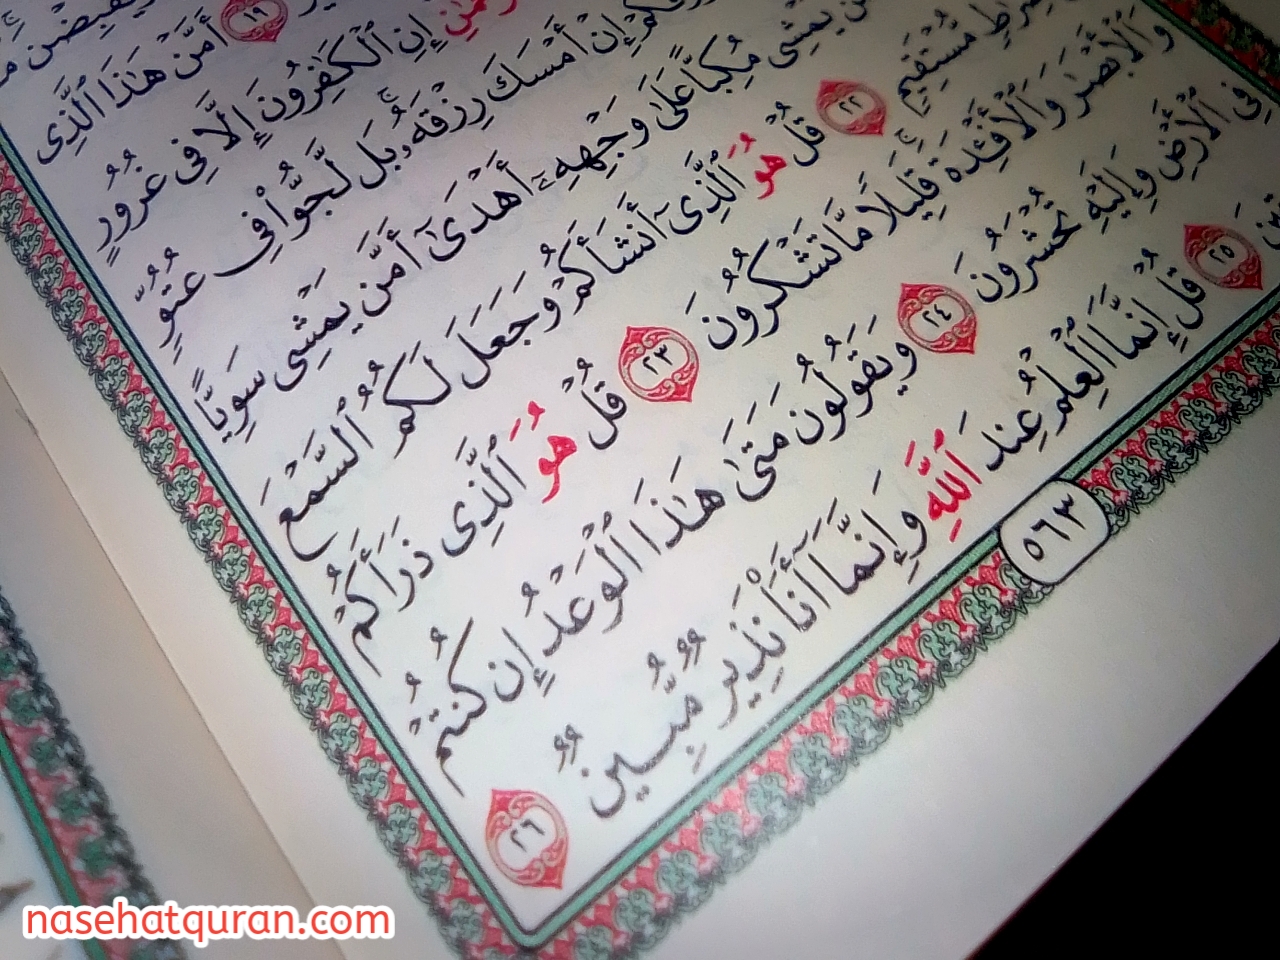 وَيَقْبِضْنَ
١٩ أَمَّنْ هَٰذَا ٱلَّذِى
إِنِ ٱلْكَٰفِرُونَ إِلَّا فِى غُرُورٍ
إِنْ أَمْسَكَ رِزْقَهُۥ ۚ بَل لَّجُّوا۟ فِى عُتُوٍّ
يَمْشِى مُكِبًّا عَلَىٰ وَجْهِهِۦٓ أَهْدَىٰٓ أَمَّن يَمْشِى سَوِيًّا
صِرَٰطٍ مُّسْتَقِيمٍ ٢٢ قُلْ هُوَ ٱلَّذِىٓ أَنشَأَكُمْ وَجَعَلَ لَكُمُ ٱلسَّمْعَ
وَٱلْأَبْصَٰرَ وَٱلْأَفْـِٔدَةَ ۖ قَلِيلًا مَّا تَشْكُرُونَ ٢٣ قُلْ هُوَ ٱلَّذِى ذَرَأَكُمْ
فِى ٱلْأَرْضِ وَإِلَيْهِ تُحْشَرُونَ ٢٤ وَيَقُولُونَ مَتَىٰ هَٰذَا ٱلْوَعْدُ إِن كُنتُمْ
٢٥ قُلْ إِنَّمَا ٱلْعِلْمُ عِندَ ٱللَّهِ وَإِنَّمَآ أَنَا۠ نَذِيرٌ مُّبِينٌ ٢٦
٥٦٣
nasehatquran.com